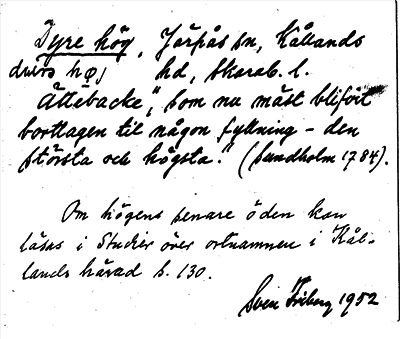 Dyre hög, Järpås sn, Kållands
hd, Skarab. l.
Ättebacke", som nu mäst blifvit
borttagen til någon fyllning - den
största och högsta." (Sundholm 1784).
Om högens senare öden kan
läsas i Studier över ortnamnen i Kål-
lands härad s. 130.
Sven Friberg 1952